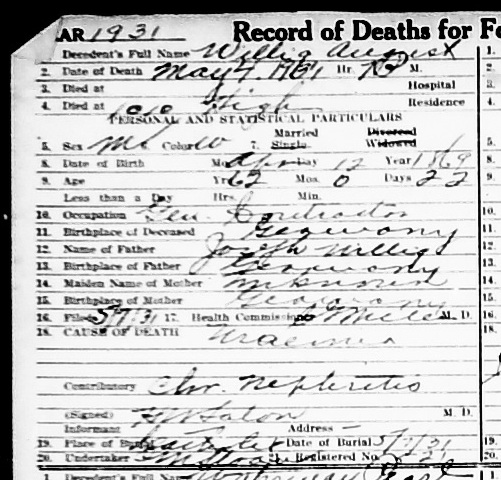 AR 1931 Record of Deaths for Fe
1. Decedent's Full Name Willig August 1.
2. Date of Death May 7, 1931 Hr. M. 2.
3. Died at Hospital 3.
4. Died at 1010 High Residence 4.
PERSONAL AND STATISTICAL PARTICULARS
5. Sex M Color W 7. Married Single Divorced Widowed 5.
8. Date of Birth Mo. April Day 12 Year 1869 8.
9. Age Yrs. 62 Mos. 0 Days 22 9.
Less than a Day Hrs. Min.
10. Occupation Gen. Contractor 10.
11. Birthplace of Deceased Germany 11.
12. Name of Father Joseph Willig 12.
13. Birthplace of Father Germany 13.
14. Maiden Name of Mother Unknown 14.
15. Birthplace of Mother Germany 15.
16. Filed 5/7/31 17. Health Commissioner M. D. 16.
18. CAUSE OF DEATH Uraemia 18.
Contributory Chr. Nephritis
(Signed) M. D.
Informant Address —
19. Place of Burial Date of Burial 19.
20. Undertaker 21. Registered No. 20.
1. Decedent's Full Name 1.